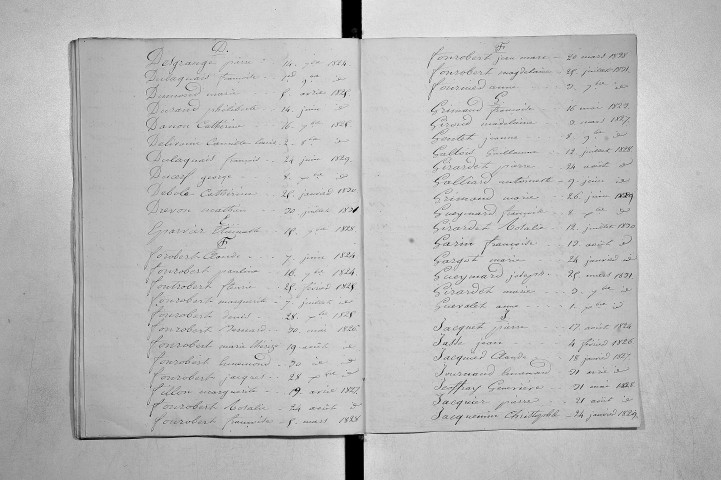 D.
Desgrange pierre - 14. jer 1824.
Dulaquais françoise - 1er 9bre de
Dumond marie - 8. avril 1825.
Durand philiberte - 14. juin de
Donon Catherine - 16. 7bre 1828.
Delienne Camille Louise 2. 8bre de
Dulaquais françois - 24 juin 1829.
Ducerf george - 8. de
Debolo Catherine - 28. janvier 1830
Drevon mathieu - 30 juillet 1831
E
Eparvier Etiennette - 18. 7bre 1828
F
forobert Claude - 7. juin 1824
fourobert pauline 16. 7bre 1824.
fourobert fleurie - 25. février 1825
fourobert marguerite - 7 juillet de
fourobert denis - 28. 1825
fourobert Bernard - 30. mai 1826
fourobert marie thérèze 19. août de
fourobert hunemond - 30 de de
fourobert jacques - 28 de
fillon marguerite - 19. avril 1827.
fourobert Rosalie - 24 août de
fourobert françoise - 8. mars 1828
F
fourobert jean marie - 20 mars 1828
fourobert magdelaine - 25. juillet 1831.
fournier anne - 3. 7bre de
G
Grimaud françoise - 16 mai 1823.
Giroud madelaine 3 mars 1827.
Goutet jeanne - 8 9bre de
Galland Guillaume - 12 juillet 1828.
Girardet pierre - 24 août de
Galliard antoinette - 9. juin de
Grimond marie - 26 juin 1829
Guaymard françoise - 8. de
Girardet Rosalie - 12. juillet 1830
Garin françoise - 13 août de
Gargot marie - 24 janvier de
Gueymard joseph - 25 mars 1831.
Girardet marie - 3. 7bre de
Guevalet anne - 1. de
J
Jacquet pierre - 17 août 1824
Jasse jean - 4 février 1826
Jacquier Claude - 18 janvier 1827.
Journoud hunemond 31 mai de
Jeoffray Geneviève - 31 mai 1828
Jacquier pierre - 21 août de
Jacquemine Christophe - 24 janvier 1829.